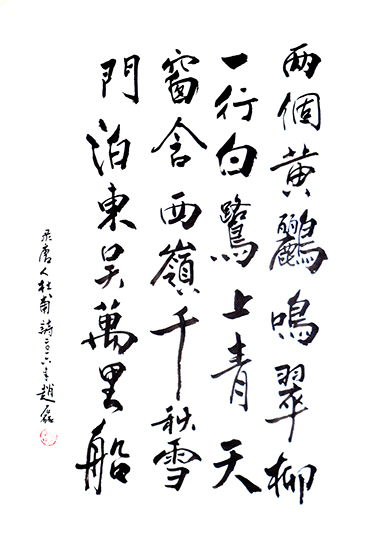 两個黄鸝鳴翠柳
一行白鷺上青天
窗含西嶺千秋雪
門泊東吴萬里船
录唐人杜甫詩六年趙磊